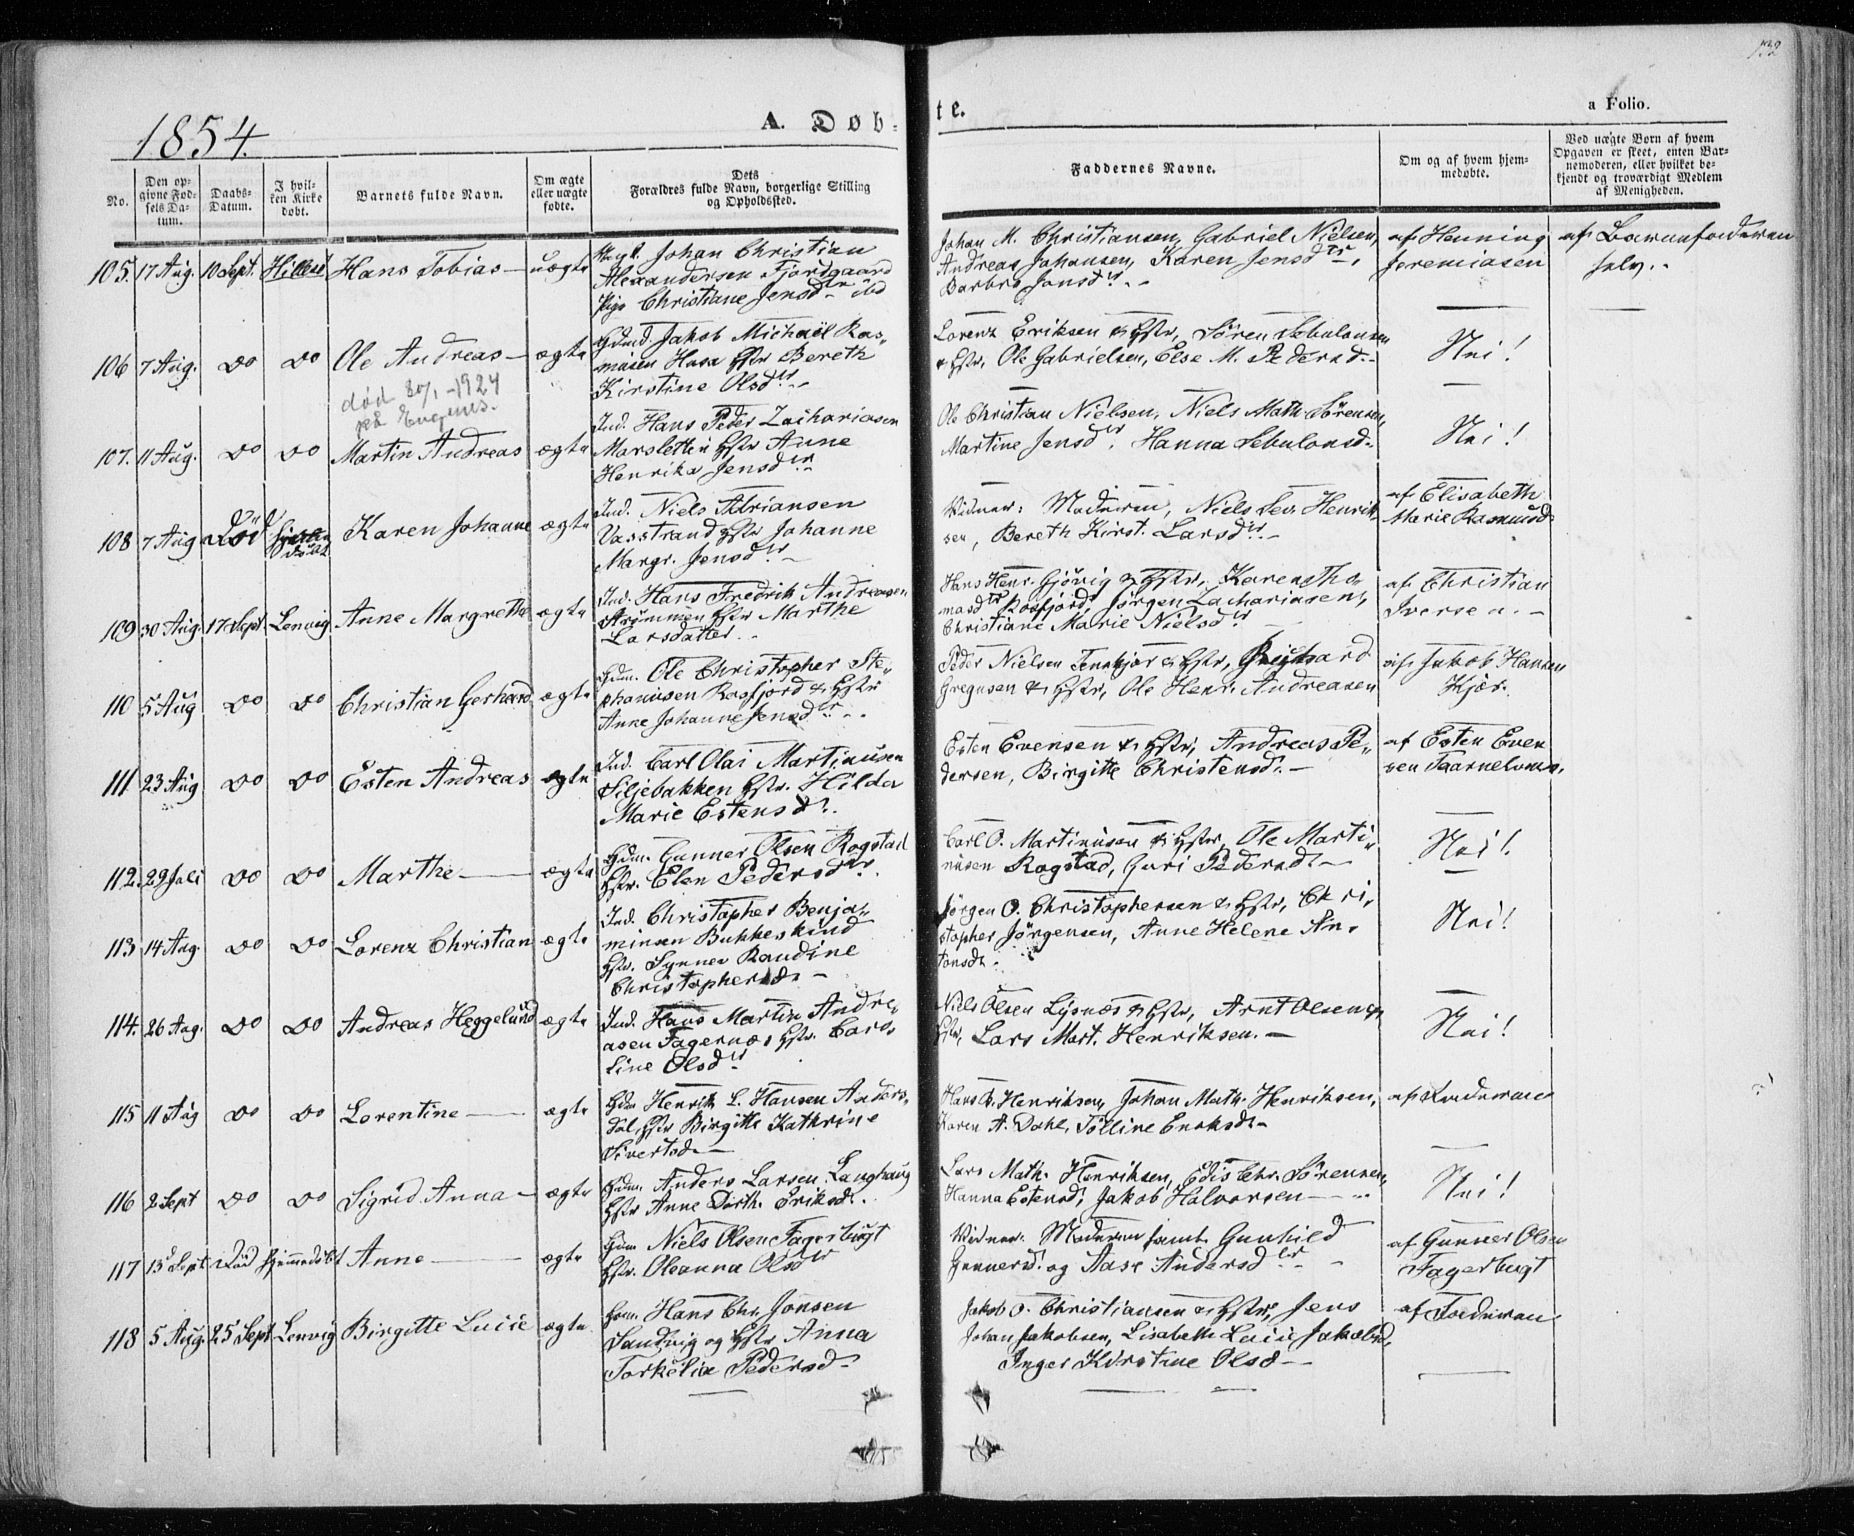 132
1854.
A. Døbte.
a Folio.
No.
Den opgivne Fødsels Datum.
Daabs-Datum.
I hvilken Kirke døbt.
Barnets fulde Navn.
Om ægte eller uægte fødte.
Dets Forældres fulde Navn, borgerlige Stilling og Opholdssted.
Faddernes Navne.
Om og af hvem hjemmedøbte.
Ved uægte Børn af hvem Opgaven er skeet, enten Barnemoderen, eller hvilket bekjendt og troværdigt Medlem af Menigheden.
105. 17 Aug. 10 Sept. Hillesö Hans Tobias uægte
Ungk. Johan Christian
Alexandersen Fjordgaard
Pige Christiane Jensdtr ibd
Johan M. Christiansen, Gabriel Nielsen,
Andreas Johansen, Karen Jensdtr,
Barbro Jonsdr.
af Henning
Jeremiasen
af Barnefaderen
selv.
106 7 Aug. Do Do Ole Andreas ægte
død 30/1 -1924
på Evgenes.
Gdmd. Jakob Michaël Ras-
musen Hustr Bereth
Kirstine Olsdtr.
Lorenz Eriksen & Hstr, Sören Sebulonsen
& Hstr, Ole Gabrielsen, Else M. Pedersd.
Nei!
107. 11 Aug. Do Do Martin Andreas ægte
Ind. Hans Peder Zachariasen
Marsletten Hstr Anne
Henrika Jensdtr
Ole Christian Nielsen, Niels Math. Sörensen,
Martine Jensdr. Hanna Sebulonsd.
Nei!
108 7 Aug Död Karen Johanne ægte
Ind. Niels Adriansen
Vasstrand Hstr Johanne
Margr. Jensdr.
Vidner: Moderen, Niels Sev. Henrik-
sen, Bereth Kirst. Larsdr.
af Elisabeth
Marie Rasmusd.
109 30 Aug. 17 Sept Lenvig Anne Margrethe ægte
Ind. Hans Fredrik Andreasen
Strömmen Hstr Marthe
Larsdatter.
Hans Henr. Gjövig & Hstr, Karen Tho-
masdtr Rosfjord, Jørgen Zachariasen,
Christiane Marie Nielsdr
af Christian
Iversen.
110 5 Aug Do Do Christian Gerhard ægte
Gdm. Ole Christopher Ste-
phanusen Rosfjord & Hstr
Anne Johanne Jensdr.
Peder Nielsen Tennkjær & Hstr, Gerhard
Gregusen & Hstr, Ole Henr. Andreasen
af Jakob Hansen
Kjær.
111 23 Aug Do Do Esten Andreas ægte
Ind. Carl Olai Martinusen
Siljebakken Hstr. Hilda
Marie Estensd.
Esten Evensen & Hstr, Andreas Pe-
dersen, Birgitte Christensd.
af Esten Even
sen Taarnelvmo.
112. 29 Juli Do Do Marthe ægte
Gdm. Gunner Olsen Rogstad
Hstr. Elen Pedersdtr
Carl O. Martinusen & Hstr, Ole Marti-
nusen Rogstad, Guri Pedersd.
Nei!
113 14 Aug. Do Do Lorenz Christian ægte
Ind. Christopher Benja-
minsen Bukkeskind
Hstr. Synner Randine
Christophersd.
Jørgen O. Christophersen & Hstr, Chri-
stopher Jörgensen, Anne Helene An-
tonsd.
Nei!
114. 26 Aug. Do Do Andreas Heggelund ægte
Ind. Hans Martin Andre-
asen Fagernæs Hstr. Caro-
line Olsdr
Niels Olsen Lysnæs & Hstr, Arnt Olsen &
Hstr, Lars Mart. Henriksen.
Nei!
115 11 Aug Do Do Lorentine ægte
Gdm Henrik L. Hansen Anders-
dal, Hstr Birgitte Kathrine
Sivertsd.
Hans B. Henriksen, Johan Math. Henriksen,
Karen A. Dahl, Tölline Enoksd.
af Faderen
116 2 Sept Do Do Sigrid Anna ægte
Gdm. Anders Larsen Langhaug
Hstr Anne Dorth. Eriksd.
Lars Math. Henriksen, Edis Chr. Sörensen,
Hanna Estensd, Jakob Halvorsen
Nei!
117 13 Sept Död Hjemmedöbt Anne ægte
Gdm Niels Olsen Fagerbugt
Hstr. Oleanna Olsdr
Vidner: Moderen samt Gunhild
Gunnersd. og Aase Andersdtr
af Gunner Olsen
Fagerbugt
118 5 Aug. 25 Sept Lenvig Birgitte Lucie ægte
Gdm. Hans Chr. Jonsen
Sandvig og Hstr Anna
Torkelia Pedersd.
Jakob O. Christiansen & Hstr, Jens
Johan Jakobsen, Lisabeth Lucie Jakobsd,
Inger Kirstine Olsd
af Faderen